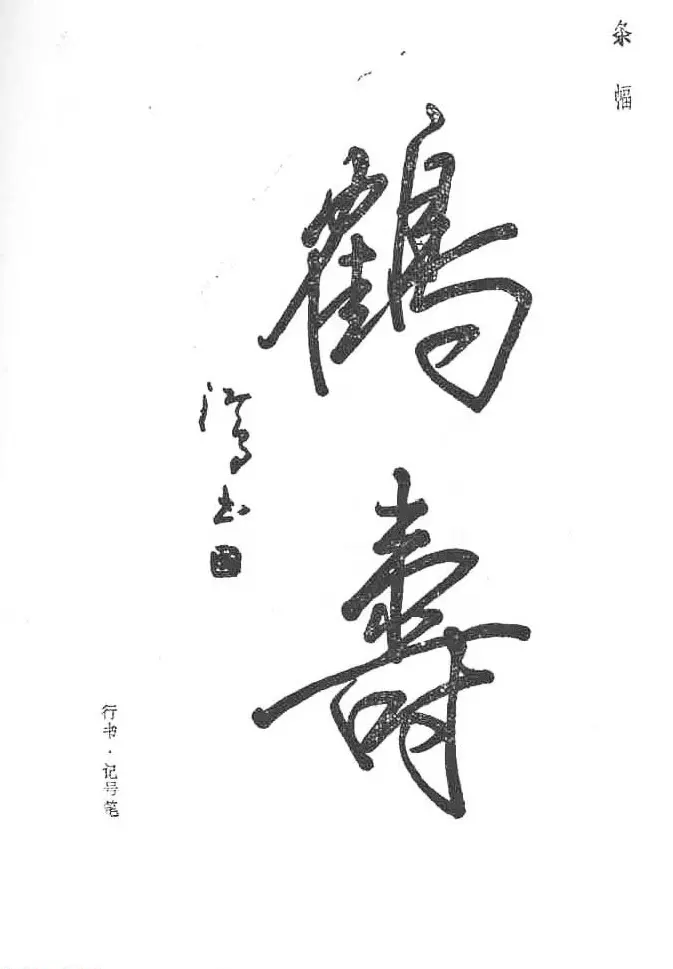 条幅
鹤寿
书
行书·记号笔